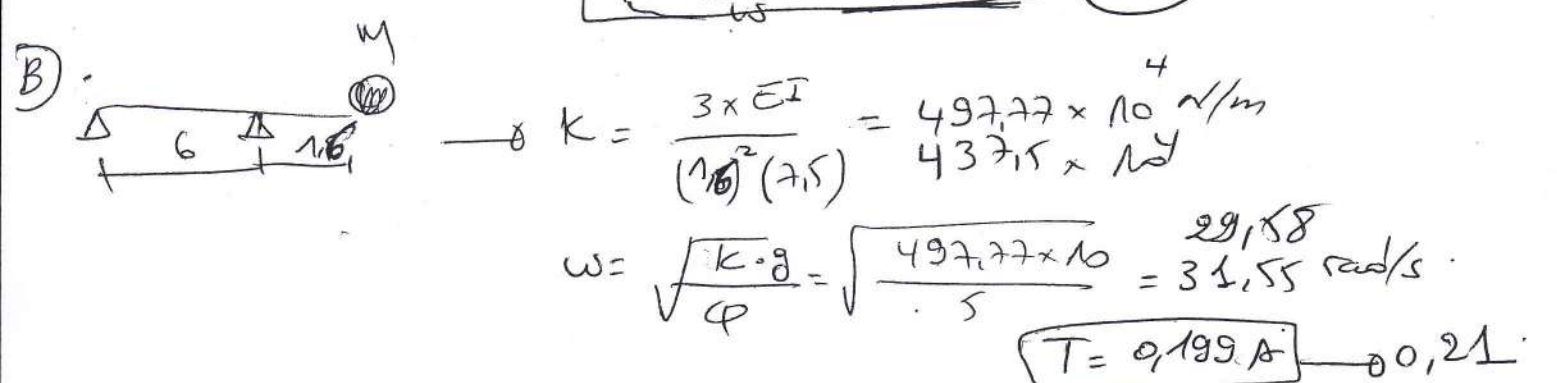 B)
M
6 1,6
K = 3 x EI / (1,6)² (7,5) = 497,77 x 10⁴ N/m
437,5 x 10⁴
ω = √(K·g / φ) = √(497,77 x 10 / 5) = 31,55 rad/s.
29,58
T = 0,199 s → 0,21